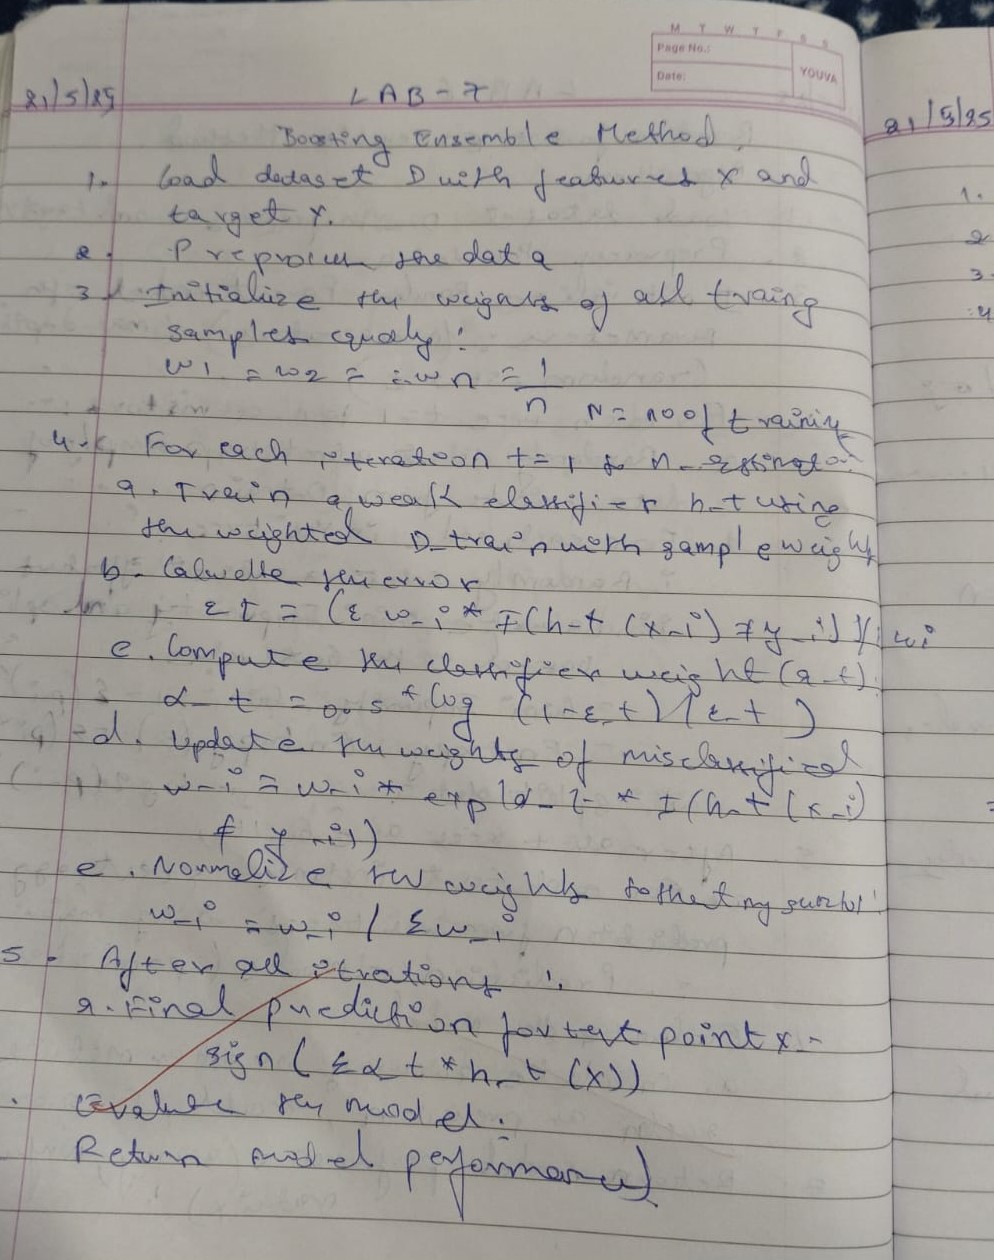 M T W T F S S
Page No.:
Date:
YOUVA
21/5/25
LAB-7
Boosting Ensemble Method.
1. Load dataset D with features X and
target Y.
2. Preprocess the data
3 Initialize the weights of all traing
samples equaly:
w1 = w2 = ...wn = 1/n N = no of training
4. For each iteration t=1 to n_estimator
a. Train a weak classifier h_t using
the weighted D_train with sample weight
b. Calculate the error
εt = (Σ w_i * I(h_t (x_i) ≠ y_i)) / wi
c. Compute the classifier weight (a_t)
α_t = 0.5 * log (1-ε_t)/(ε_t)
d. Update the weights of misclassified
w_i = w_i * exp(α_t * I(h_t (x_i)
≠ y_i))
e. Normalize the weights so that
w_i = w_i / Σw_i
5. After all itrations:
a. Final prediction for test point x-
sign(Σα t * h_t (x))
Evaluate the model.
Return model performance)
21/5/25
1.
2
3.
4